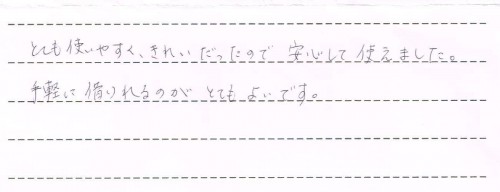 とても使いやすく、きれいだったので 安心して使えました。
手軽に借りれるのがとてもよいです。